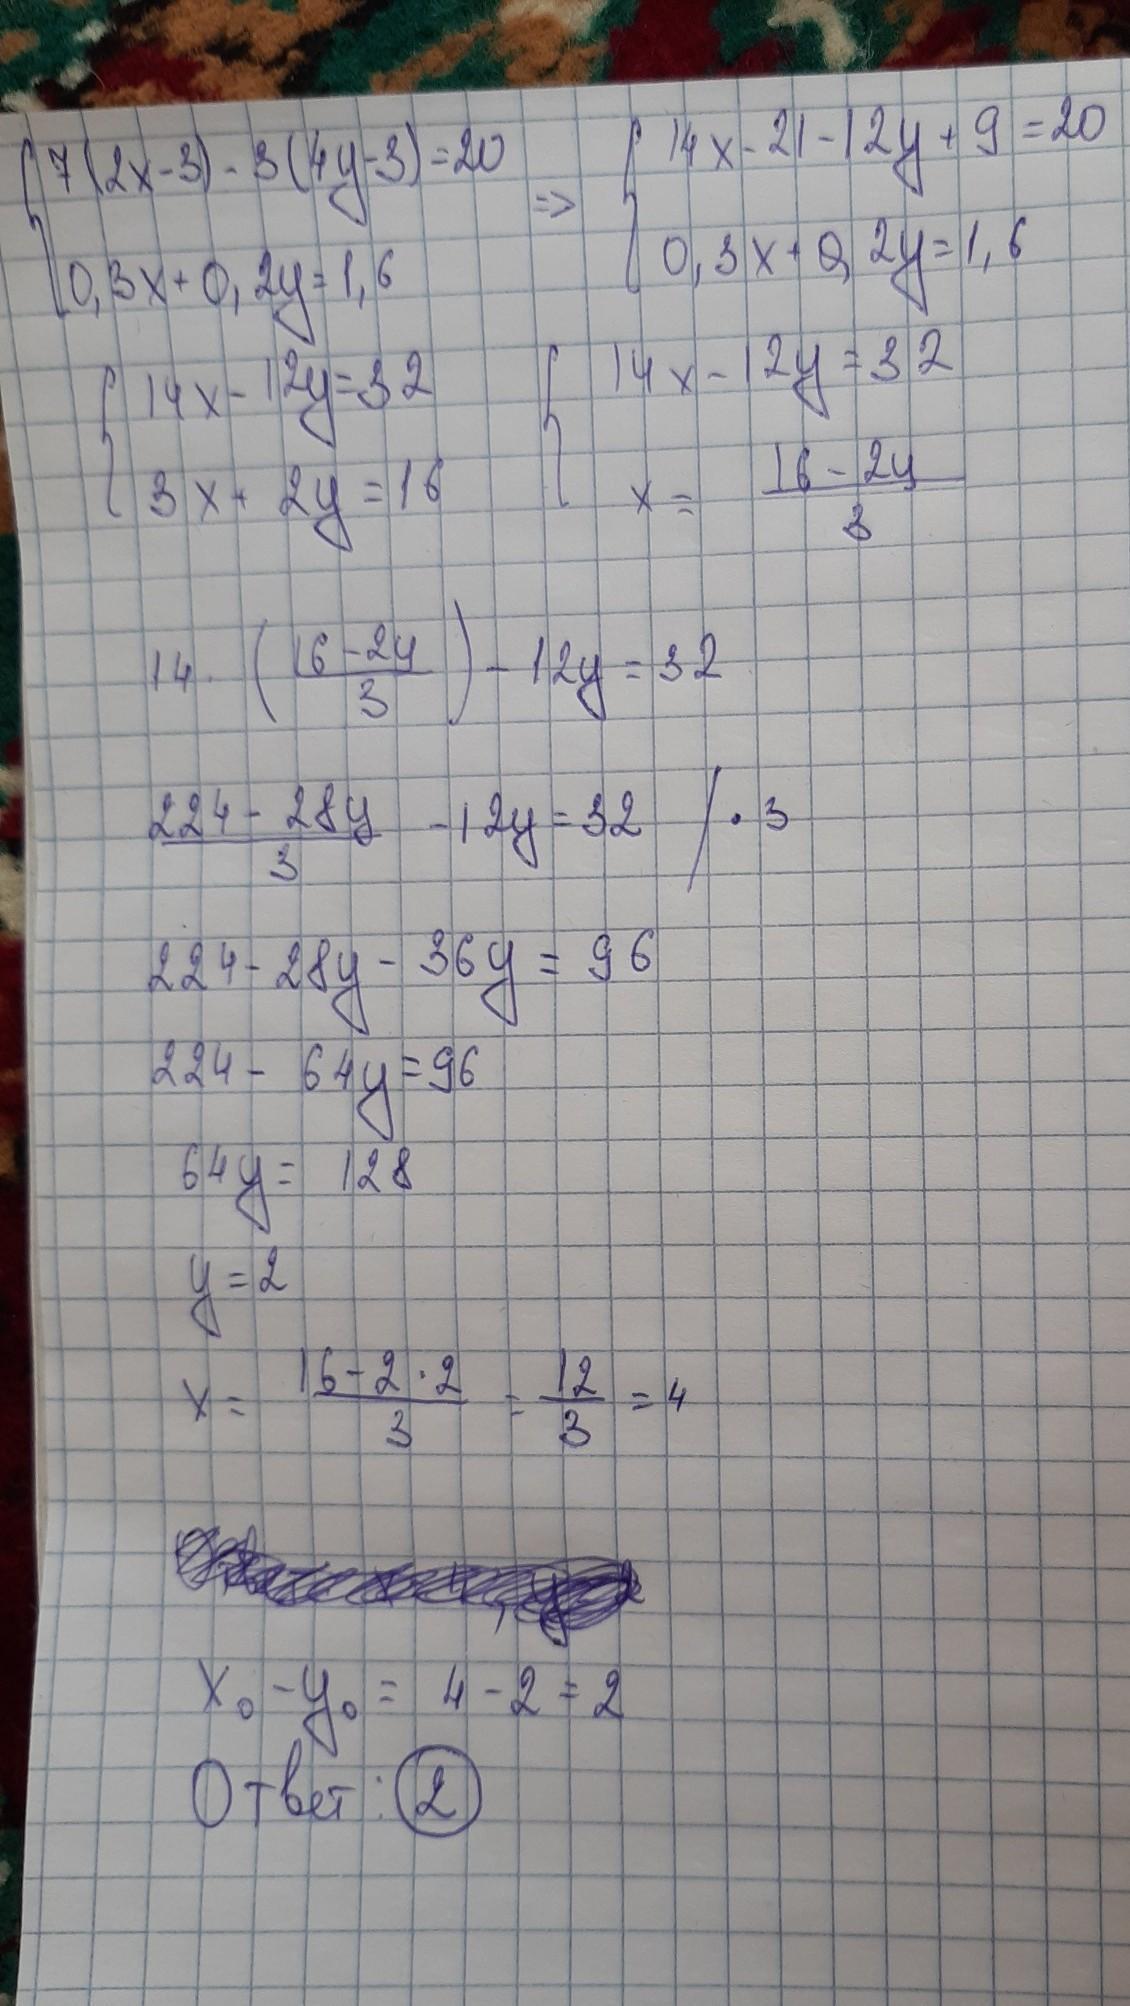 { 7(2x-3)-3(4y-3)=20 => { 14x-21-12y+9=20
0,3x+0,2y=1,6 0,3x+0,2y=1,6
{ 14x-12y=32 { 14x-12y=32
3x+2y=16 x= (16-2y)/3
14·((16-2y)/3)-12y=32
(224-28y)/3 -12y=32 /·3
224-28y-36y=96
224-64y=96
64y=128
y=2
x= (16-2·2)/3 = 12/3 =4
x₀-y₀=4-2=2
Ответ: 2